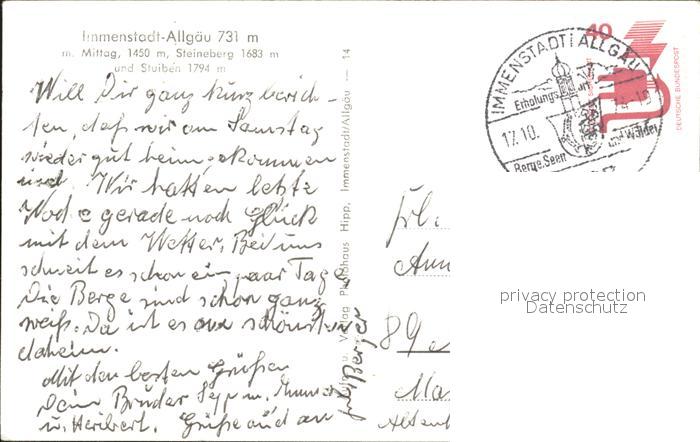 Immenstadt-Allgäu 731 m
m. Mittag, 1450 m, Steineberg 1683 m
und Stuiben 1794 m
Will Dir ganz kurz berich-
ten, daß wir am Samstag
wieder gut heimgekommen
sind. Wir hatten letzte
Woche gerade noch Glück
mit dem Wetter. Bei uns
schneit es schon ein paar Tage
Die Berge sind schon ganz
weiß. Da ist es am schönsten
daheim.
Mit den besten Grüßen
Dein Bruder Sepp m.
u. Heribert. Grüße auch an
Frl. Berger
Verlag Photohaus Hipp, Immenstadt/Allgäu — 14
IMMENSTADT i ALLGÄU
Erholungsort
17.10.
und Wälder
Berge, Seen
40
DEUTSCHE BUNDESPOST
Frl.
Ann
89
Ma
Alten
privacy protection
Datenschutz